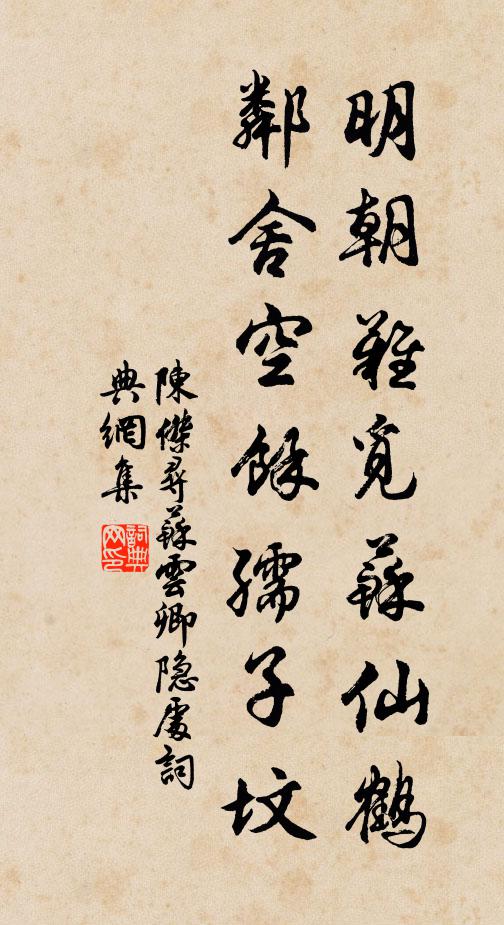 明朝難覓蘇仙鶴
鄰舍空餘孺子墳
陳傑尋蘇雲卿隐處詞
典網集
詞典
网印